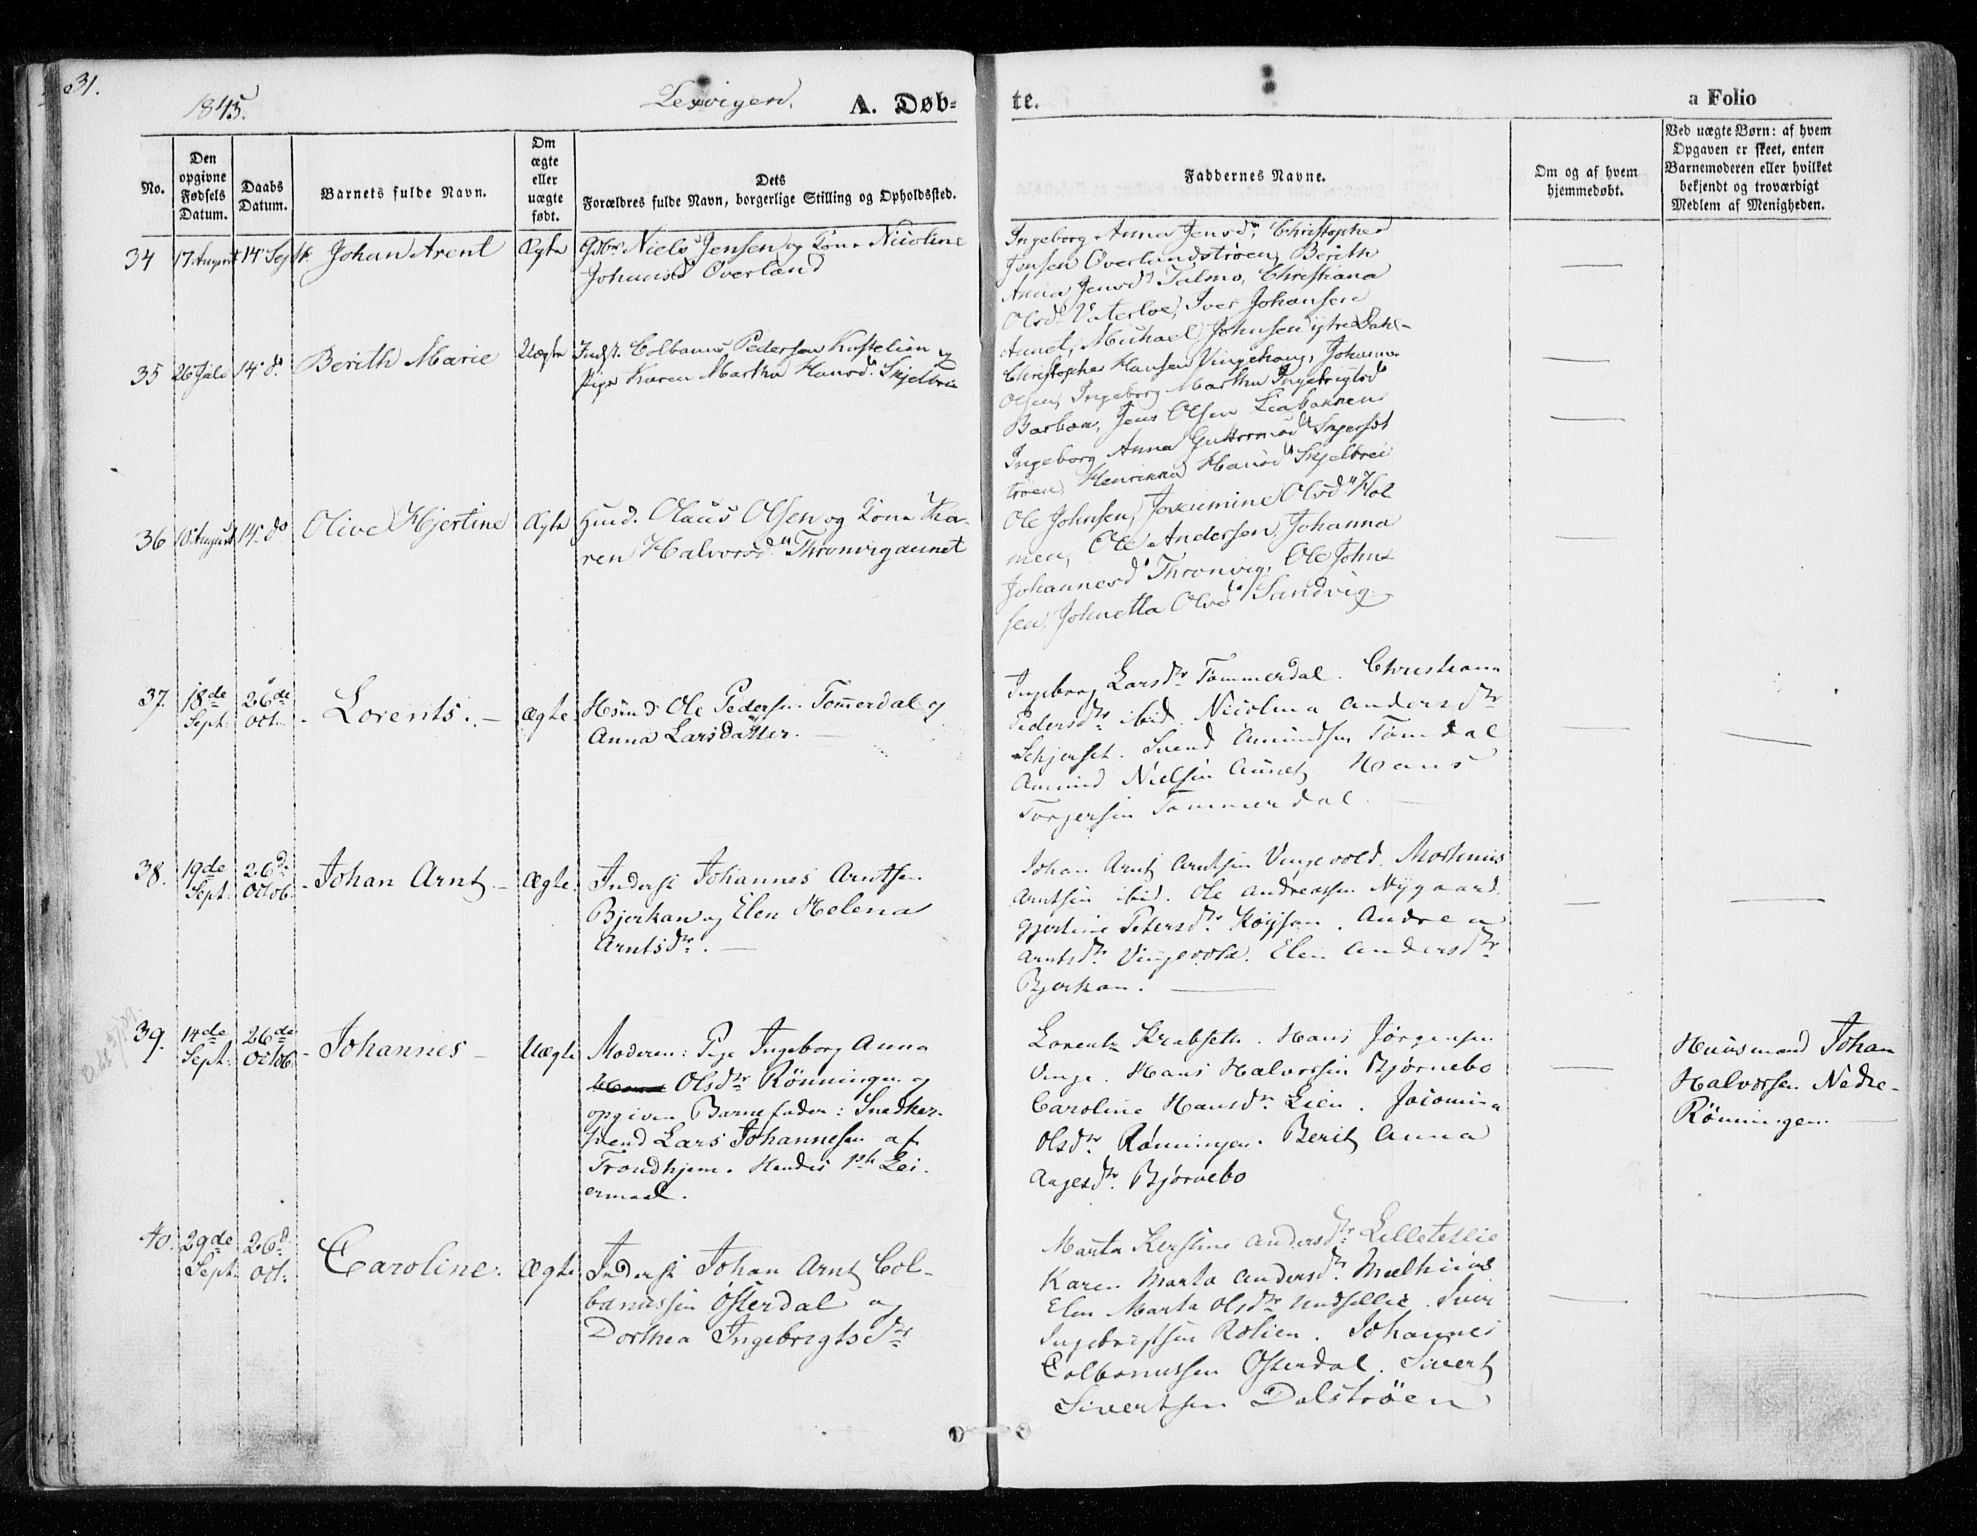 31.
1845.
Lexvigen.
A. Døb-
te.
a Folio
No.
Den
opgivne
Fødsels
Datum.
Daabs
Datum.
Barnets fulde Navn.
Om
ægte
eller
uægte
født.
Dets
Forældres fulde Navn, borgerlige Stilling og Opholdssted.
Faddernes Navne.
Om og af hvem
hjemmedøbt.
Ved uægte Børn: af hvem
Opgaven er skeet, enten
Barnemoderen eller hvilket
bekjendt og troværdigt
Medlem af Menigheden.
34 17 August 14 Sept Johan Arent Ægte
Gdbr Niels Jensen og Kone Nicoline
Johansd Overland
Ingeborg Anna Jensdr Christopher
Jensen Overlandstrøen, Berith
Anna Jensdr Talmo, Christiana
Olsdr Vaterloe, Iver Johansen
Aunet, Michael Johnsen ytre Dahl-
35 26 Juli 14 do Berith Marie Uægte
Inds. Colbanus Pedersen Kastelien og
Pige Karen Martha Hansd. Skjelbrei
Christopher Hansen Vingehaug, Johannes
Olsen, Ingeborg Martha Ingebrigtsd
Barban, Jens Olsen Leabakken
Ingeborg Anna Guttormsd
trøen, Henrikka Hansd Skjelbrei
36 10 August 14 do Olive Hjertine Ægte
Huusd. Olaus Olsen og Kone Ka-
ren Halvorsd. Thronvigaunet
Ole Johnsen, Olsdr Hol
men, Ole Andersen, Johanna
Johannesd Thronvig, Ole John-
sen, Johnetta Olsd Sandvig
37. 18de Sept. 26de Oct. Lorents. Ægte
Hsmd Ole Pedersen Tommerdal og
Anna Larsdatter.
Ingeborg Larsdr Tommerdal. Christiana
Pedersdr ibid. Nicolina Andersdr
Schjerset. Svend Amundsen Tomdal
Amund Nielsen Aunet Hans
Torgersen Tommerdal.
38. 19de Sept. 26d. Octob. Johan Arnt Ægte.
Inderst Johannes Arntsen
Bjerkan og Elen Helena
Arntsdr.
Johan Arnt Arntsen Vingevold. Mortinus
Arntsen ibid. Ole Andreassen Nygaard
Gjertine Petersdr. . Andrea
Arntsdr Vingevold. Elen Andersdr
Bjerkan.
39. 14de Sept. 26de Octob. Johannes Uægte
Moderen: Pige Ingeborg Anna
Olsdr Rönningen og
opgiven Barnefader: Snedker-
svend Lars Johannesen af
Trondhjem. Hendes 1ste Lei-
ermaal.
Lorents Krabseth. Hans Jørgensen
Vinge. Hans Halvorsen Bjørnebo
Caroline Hansdr. Lien. Jacomina
Olsdr Rönningen. Berit Anna
Aagesdr. Bjørnebo
Huusmand Johan
Halvorsen Nedre-
Rönningen.
40. 29de Sept. 26d. Oct. Caroline. Ægte
Inderst Johan Arnt Col-
banussen Osterdal og
Dorthea Ingebrigtsdr
Marta Kerstine Andersdr Lilletelie
Karen Marta Andersdr. Melhuus
Elen Marta Olsdr . Iver
Ingebrigtsen Rolien. Johannes
Colbanussen Osterdal. Sivert
Sivertsen Dalstrøen